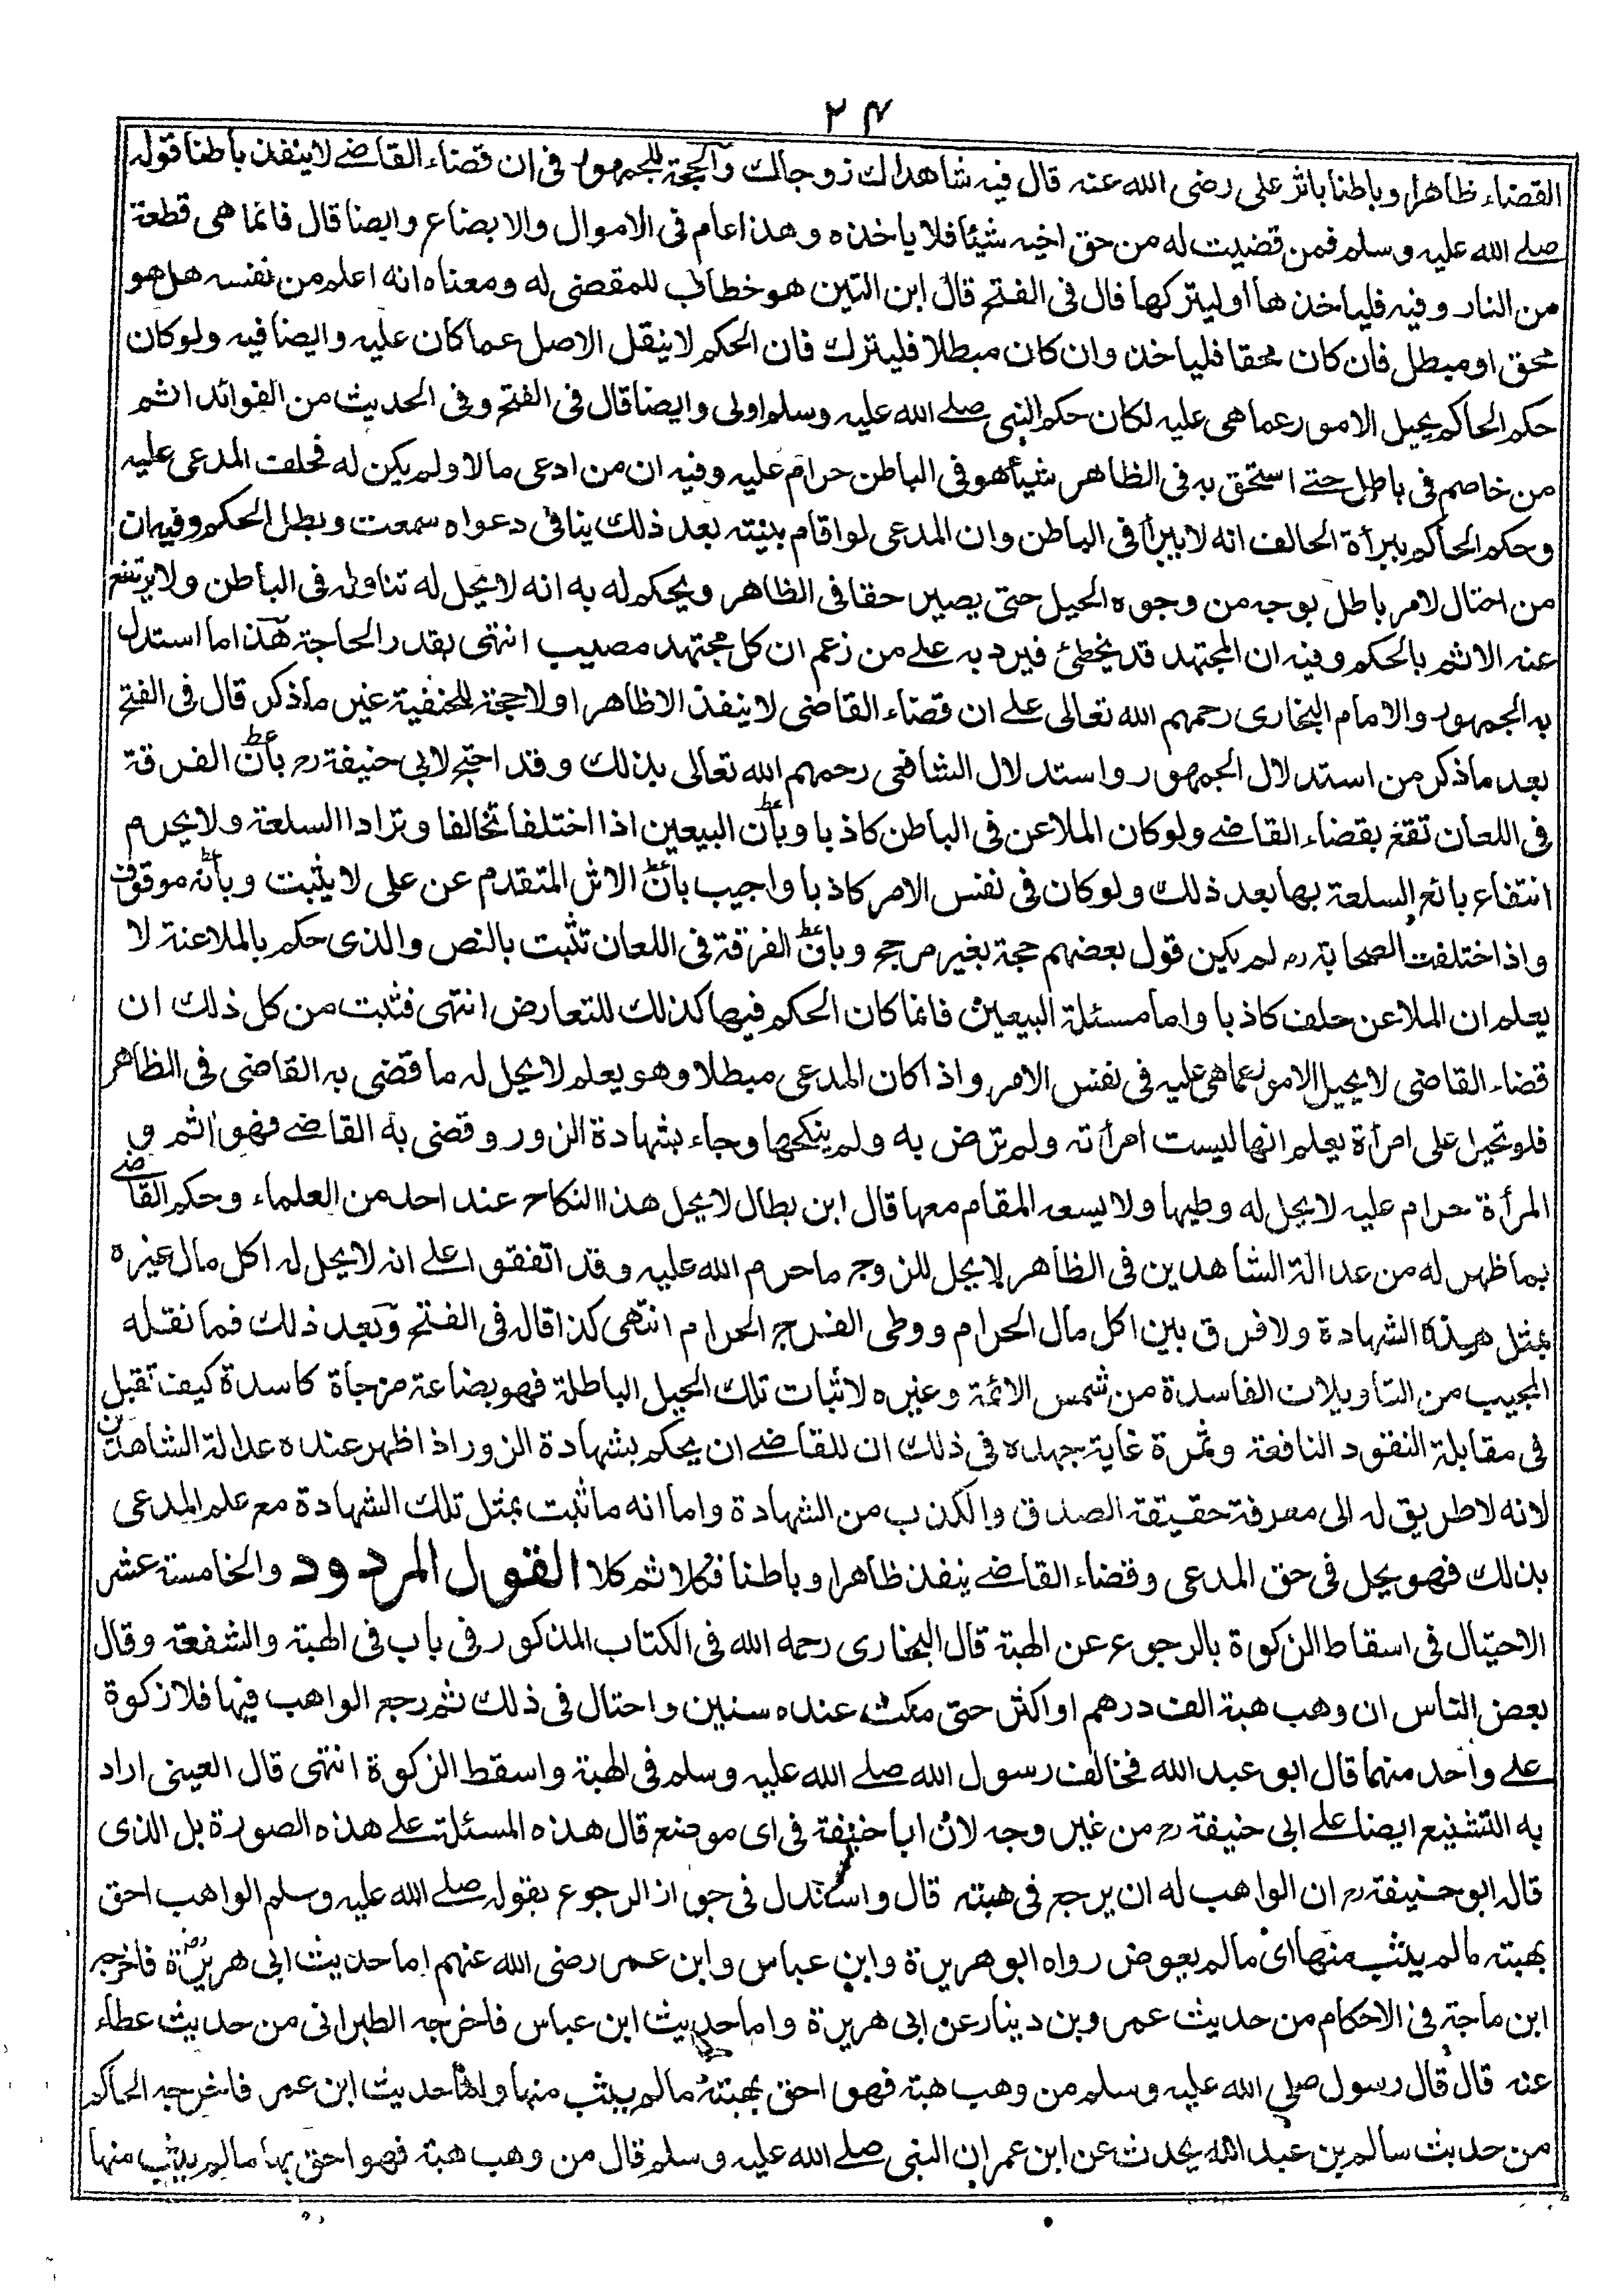 ٢٤
القضاء ظاهرا وباطنا باثر علی رضی الله عنه قال فيه شاهداك زوجاك والحجة للجمهور فی ان قضاء القاضے لا ينفذ باطنا قوله
صلے الله عليه وسلم فمن قضيت له من حق اخيه شيئا فلا ياخذه وهذا عام فی الاموال والابضاع وايضا قال فانما هی قطعة
من النار وفيه فلياخذها او ليتركها قال فی الفتح قال ابن التين هو خطاب للمقضی له ومعناه انه اعلم من نفسه هل هو
محق او مبطل فان كان محقا فلياخذ وان كان مبطلا فليترك فان الحكم لا ينقل الاصل عما كان عليه وايضا فيه ولو كان
حكم الحاكم يحيل الامور عما هی عليه لكان حكم النبی صلے الله عليه وسلم اولی وايضا قال فی الفتح وفی الحديث من الفوائد اثم
من خاصم فی باطل حتے استحق به فی الظاهر شيئا هو فی الباطن حرام عليه وفيه ان من ادعی مالا ولم يكن له فحلف المدعی عليه
وحكم الحاكم ببرأة الحالف انه لا يبرأ فی الباطن وان المدعی لو اقام بنيته بعد ذلك ينافی دعواه سمعت وبطل الحكم وفيه ان
من احتال لامر باطل بوجه من وجوه الحيل حتی يصير حقا فی الظاهر ويحكم له به انه لا يحل له تناوله فی الباطن ولا يرتفع
عنه الاثم بالحكم وفيه ان المجتهد قد يخطئ فيرد به علے من زعم ان كل مجتهد مصيب انتهی بقدر الحاجة هذا ما استدل
به الجمهور والامام البخاری رحمهم الله تعالی علے ان قضاء القاضی لا ينفذ الا ظاهرا ولا حجة للحنفية غير ما ذكر قال فی الفتح
بعد ما ذكر من استدلال الجمهور واستدلال الشافعی رحمهم الله تعالی بذلك وقد احتج لابی حنيفة رح بان الفرقة
فی اللعان تقع بقضاء القاضے ولو كان الملاعن فی الباطن كاذبا وبان البيعين اذا اختلفا تحالفا وترادا السلعة ولا يحرم
انتفاع بائع السلعة بها بعد ذلك ولو كان فی نفس الامر كاذبا واجيب بان الاثر المتقدم عن علی لا يثبت وبانه موقوف
واذ اختلفت الصحابة رض لم يكن قول بعضهم حجة بغير مرجح وبان الفرقة فی اللعان تثبت بالنص والذی حكم بالملاعنة لا
يعلم ان الملاعن حلف كاذبا واما مسئلة البيعين فانما كان الحكم فيها كذلك للتعارض انتهی فثبت من كل ذلك ان
قضاء القاضی لا يحيل الامور عما هی عليه فی نفس الامر واذا كان المدعی مبطلا وهو يعلم لا يحل له ما قضی به القاضی فی الظاهر
فلو تحيل علی امرأة يعلم انها ليست امرأته ولم ترض به ولم ينكحها وجاء بشهادة الزور وقضی به القاضے فهو اثم و
المرأة حرام عليه لا يحل له وطيها ولا يسعه المقام معها قال ابن بطال لا يحل هذا النكاح عند احد من العلماء وحكم القاضے
بما ظهر له من عدالة الشاهدين فی الظاهر لا يحل للزوج ما حرم الله عليه وقد اتفقوا علے انه لا يحل له اكل مال غيره
بمثل هذه الشهادة ولا فرق بين اكل مال الحرام ووطی الفرج الحرام انتهی كذا قال فی الفتح وبعد ذلك فما نقله
المجيب من التاويلات الفاسدة من شمس الائمة وغيره لاثبات تلك الحيل الباطلة فهو بضاعة مزجاة كاسدة كيف تقبل
فی مقابلة النقود النافعة وثمرة غاية جهده فی ذلك ان للقاضے ان يحكم بشهادة الزور اذا ظهر عنده عدالة الشاهدين
لانه لا طريق له الی معرفة حقيقة الصدق والكذب من الشهادة واما انه ما ثبت بمثل تلك الشهادة مع علم المدعی
بذلك فهو يحل فی حق المدعی وقضاء القاضے ينفذ ظاهرا وباطنا فكلا ثم كلا القول المردود والخامسة عشر
الاحتيال فی اسقاط الزكوة بالرجوع عن الهبة قال البخاری رحمه الله فی الكتاب المذكور فی باب فی الهبة والشفعة وقال
بعض الناس ان وهب هبة الف درهم او اكثر حتی مكث عنده سنين واحتال فی ذلك ثم رجع الواهب فيها فلا زكوة
علے واحد منهما قال ابو عبد الله فخالف رسول الله صلے الله عليه وسلم فی الهبة واسقط الزكوة انتهی قال العينی اراد
به التشنيع ايضا علے ابی حنيفة رح من غير وجه لان ابا حنيفة فی ای موضع قال هذه المسئلة علے هذه الصورة بل الذی
قاله ابو حنيفة رح ان الواهب له ان يرجع فی هبته قال واستدل فی جواز الرجوع بقوله صلے الله عليه وسلم الواهب احق
بهبته ما لم يثب منها ای ما لم يعوض رواه ابو هريرة وابن عباس وابن عمر رضی الله عنهم اما حديث ابی هريرة رض فاخرجه
ابن ماجة فی الاحكام من حديث عمرو بن دينار عن ابی هريرة واما حديث ابن عباس فاخرجه الطبرانی من حديث عطاء
عنه قال قال رسول صلی الله عليه وسلم من وهب هبة فهو احق بهبته ما لم يثب منها واما حديث ابن عمر فاخرجه الحاكم
من حديث سالم بن عبد الله يحدث عن ابن عمر ان النبی صلے الله عليه وسلم قال من وهب هبة فهو احق بها ما لم يثب منها